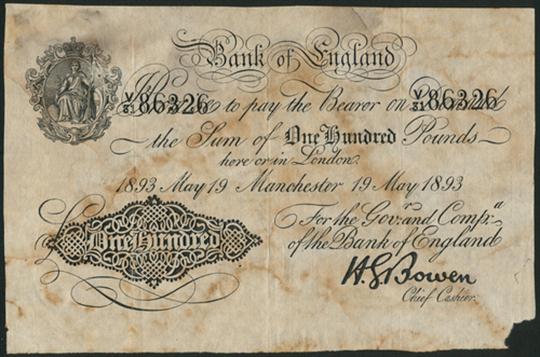 Bank of England
V/31 86326 to pay the Bearer on V/31 86326
the Sum of One Hundred Pounds
here or in London.
1893 May 19 Manchester 19 May 1893
For the Govr. and Compa.
of the Bank of England
£ One Hundred
H.G. Bowen
Chief Cashier.